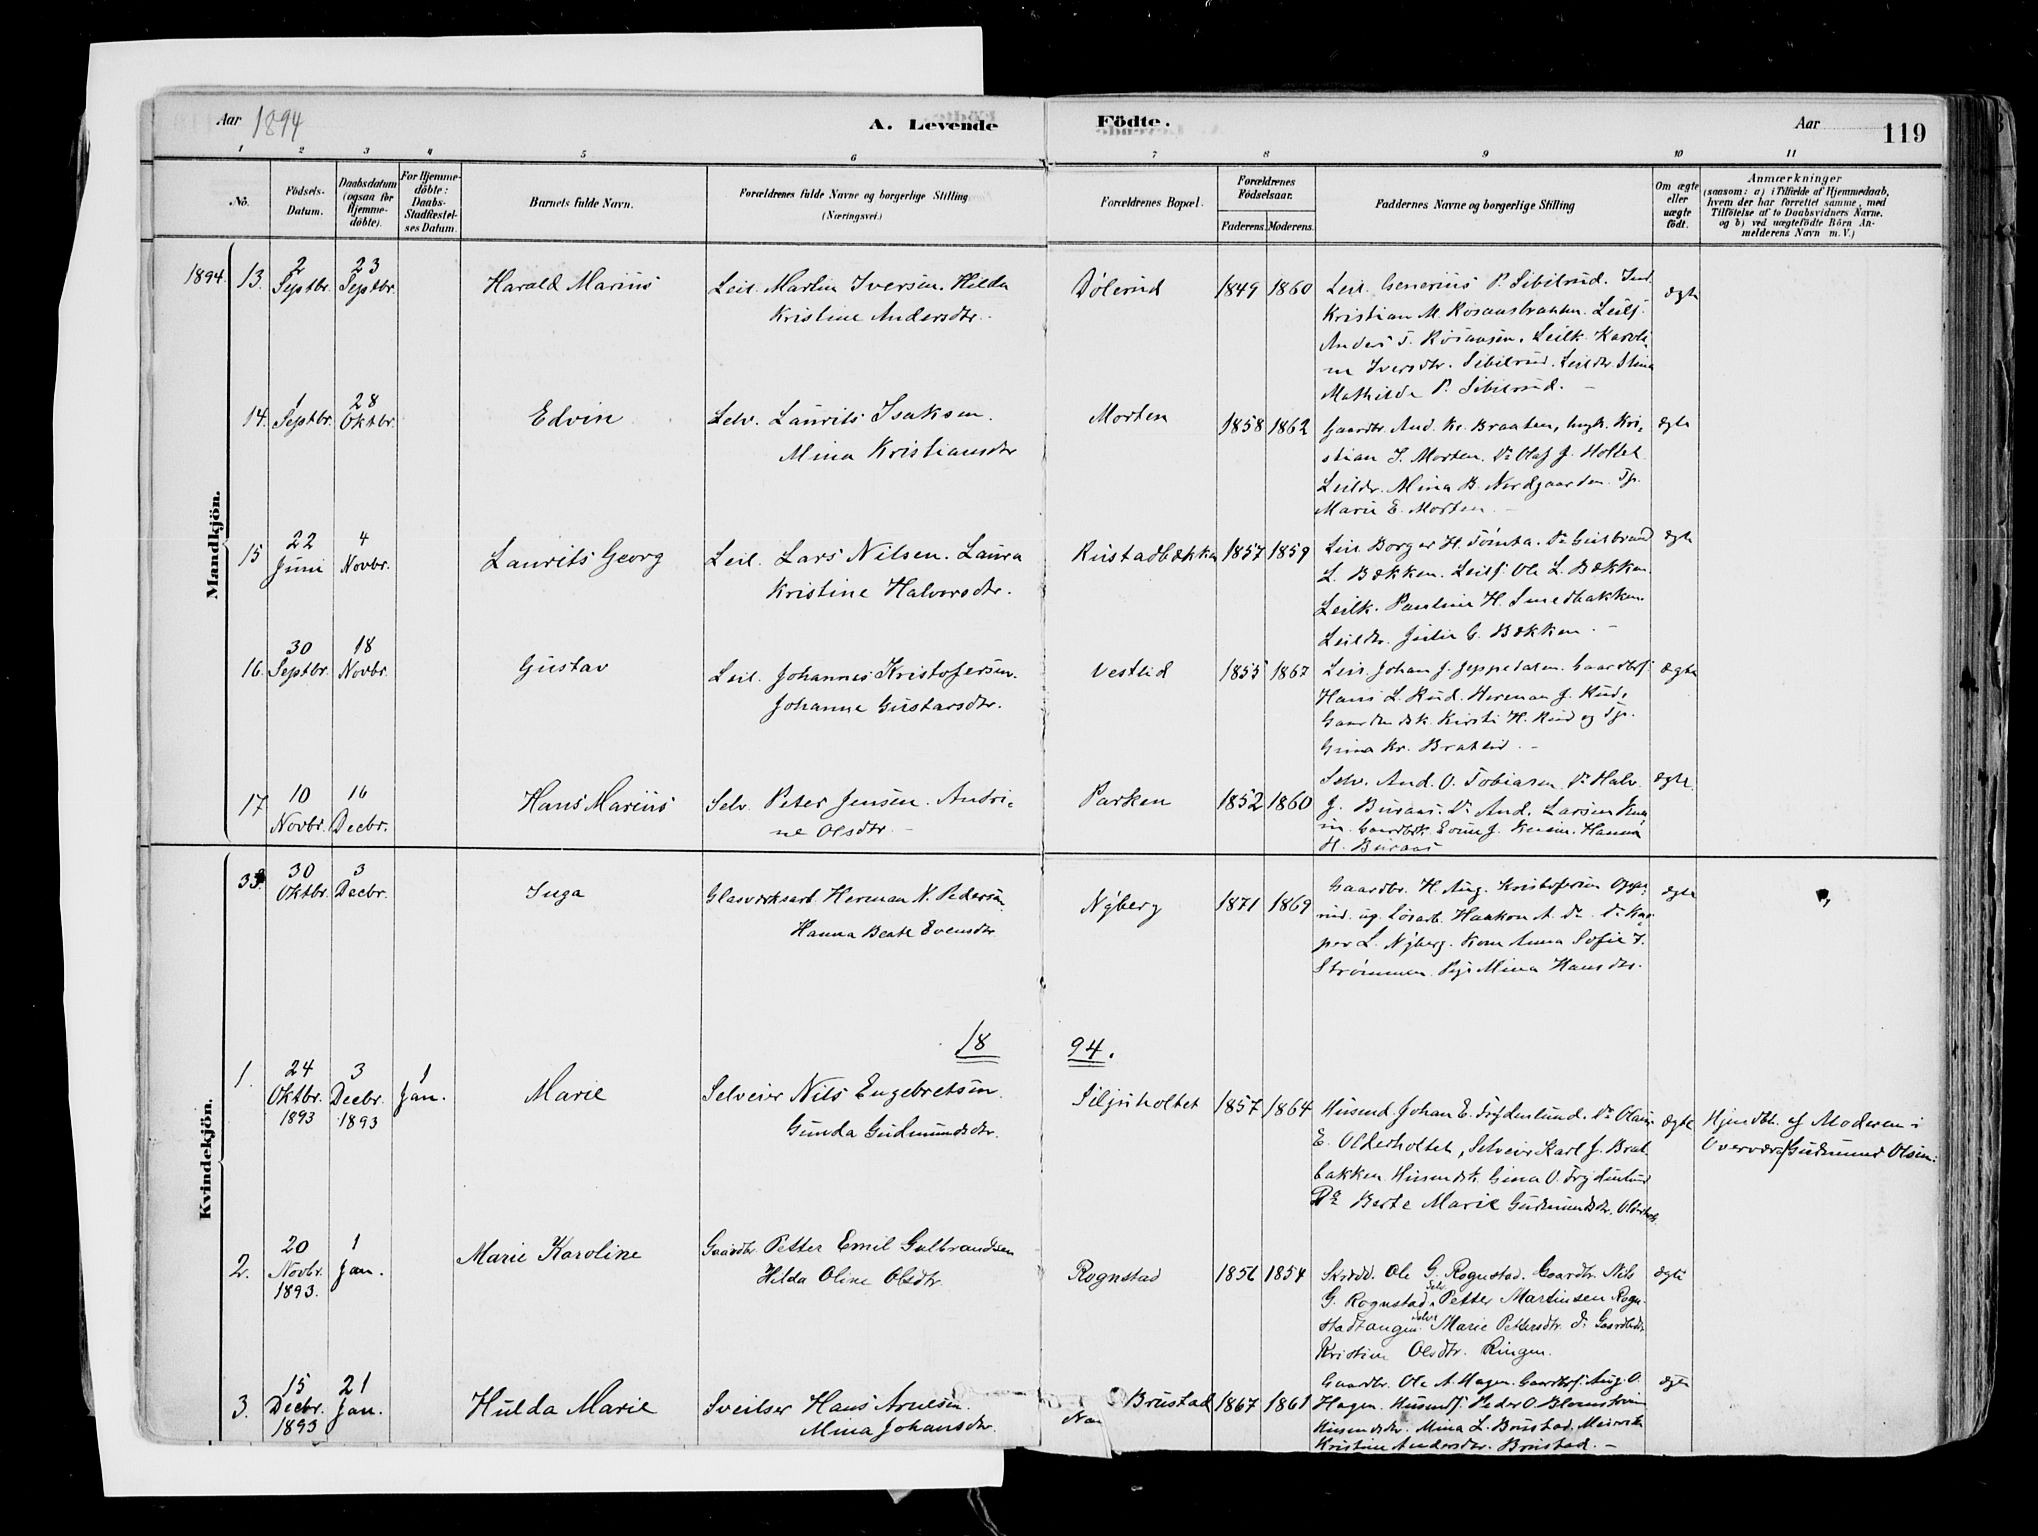 Aar 1894
A. Levende
Födte.
Aar
119
1 2 3 4 5 6 7 8 9 10 11
No.
Födsels-Datum.
Daabsdatum (ogsaa for Hjemme-döbte).
For Hjemme-döbte: Daabs-Stadfæstel-ses Datum.
Barnets fulde Navn.
Forældrenes fulde Navne og borgerlige Stilling (Næringsvei.)
Forældrenes Bopæl.
Forældrenes Födselsaar.
Faderens. Moderens.
Faddernes Navne og borgerlige Stilling
Om ægte eller uægte födt.
Anmærkninger
(saasom: a) i Tilfælde af Hjemmedaab,
hvem der har forrettet samme, med
Tilföielse af to Daabsvidners Navne.
og b) ved uægtefödte Börn An-
melderens Navn m. V.)
Mandkjön.
1894. 13. 2 Septbr. 23 Septbr. Harald Marius Leil. Martin Iversen. Hilda
Kristine Andersdtr.
Dølerud 1849 1860 Leil. Generius P. Sibilrud. Ind.
Kristian M. Rosaasbraaten. Leilf.
Anders T. Rosaasen. Leilk. Karoli-
ne Iversdtr. Sibilrud. Leildtr. Stina
Mathilde P. Sibilrud. –
ægte
14. 1 Septbr. 28 Oktbr. Edvin Selv. Laurits Isaksen.
Mina Kristiansdtr
Morten 1858 1862 Gaardbr. And. Kr. Braaten, Ungk. Kri-
stian I. Morten. Do Olaf J. Holtet
Leildtr. Mina B. Nordgaarden. Tj.
Marie E. Morten. –
ægte
15 22 Juni 4 Novbr. Laurits Georg Leil. Lars Nilsen. Laura
Kristine Halvorsdtr.
Rustadbækken 1857 1859 Leil Borger H. Tømta. Do Gulbrand
L. Bækken. Leilf. Ole L. Bækken
Leilk. Pauline H. Smedbakken.
Leildtr. Julie G. Bækken. –
ægte
16. 30 Septbr. 18 Novbr. Gustav Leil. Johannes Kristofersen.
Johanne Gustavsdtr.
Vestlid 1855 1867 Leil. Johan J. Jeppedalen. Gaardbrf.
Hans L. Rud. Herman J. Rud.
Kirsti H. Rud og Tj.
Gina Kr. Bratlid. –
ægte
17 10 Novbr. 16 Decbr. Hans Marius Selv. Peter Jensen. Andri-
ne Olsdtr. –
Parken 1852 1860 Selv. And. O. Tobiasen. Do Halv.
J. Buraas. Do And. Larsen
Hanna
H. Buraas
ægte
Kvindekjön.
33. 30 Oktbr. 3 Decbr. Inga Glasværksarb. Herman N. Pedersen
Hanna Beate Evensdtr
Nyberg 1871 1869 Gaardbr. H. Aug. Kristofersen Oppe-
rud. og Løsarb. Haakon A. Do. Do Kas-
per L. Nyberg. Kone Anna Sofie I.
Strømmen. Pige Mina Hansdtr.
ægte
18 94.
1. 24 Oktbr. 1893 3 Decbr. 1893 1 Jan. Marie Selveier Nils Engebretsen.
Gunda Gudmundsdtr.
Siljuholtet 1857 1864 Husmd. Johan E. Frydenlund. Do Olaus
E. Olderholtet, Selveier Karl J. Brat-
bakken Husmdk. Gina O. Frydenlund
Do Berte Marie Gudmundsdtr. Olderholt.
ægte
Hjemdbt. af Moderen i
Overvær/Gudmund Olsen.
2. 20 Novbr. 1893. 1 Jan. Marie Karoline Gaardbr. Petter Emil Gulbrandsen
Hilda Oline Olsdtr.
Rognstad 1856 1854 Skrædd. Ole G. Rognstad. Gaardbr. Nils
G. Rognstad. Selv Petter Martinsen Rogn-
stadtangen. Selve Marie Pettersdtr. do Gaardbrdtr
Kristine Olsdtr. Ringen.
ægte
3. 15 Decbr. 1893 21 Jan. Hulda Marie Sveitser Hans Arnesen.
Mina Johansdtr.
Brustad 1867 1861 Gaardbr. Ole A. Hagen. Gaardbrf. Aug. O.
Hagen. Husmdf. Peder O. Blomstrøm
Husmdsdtr. Mina L. Brustad,
Kristine Andersdtr. Brustad. –
ægte